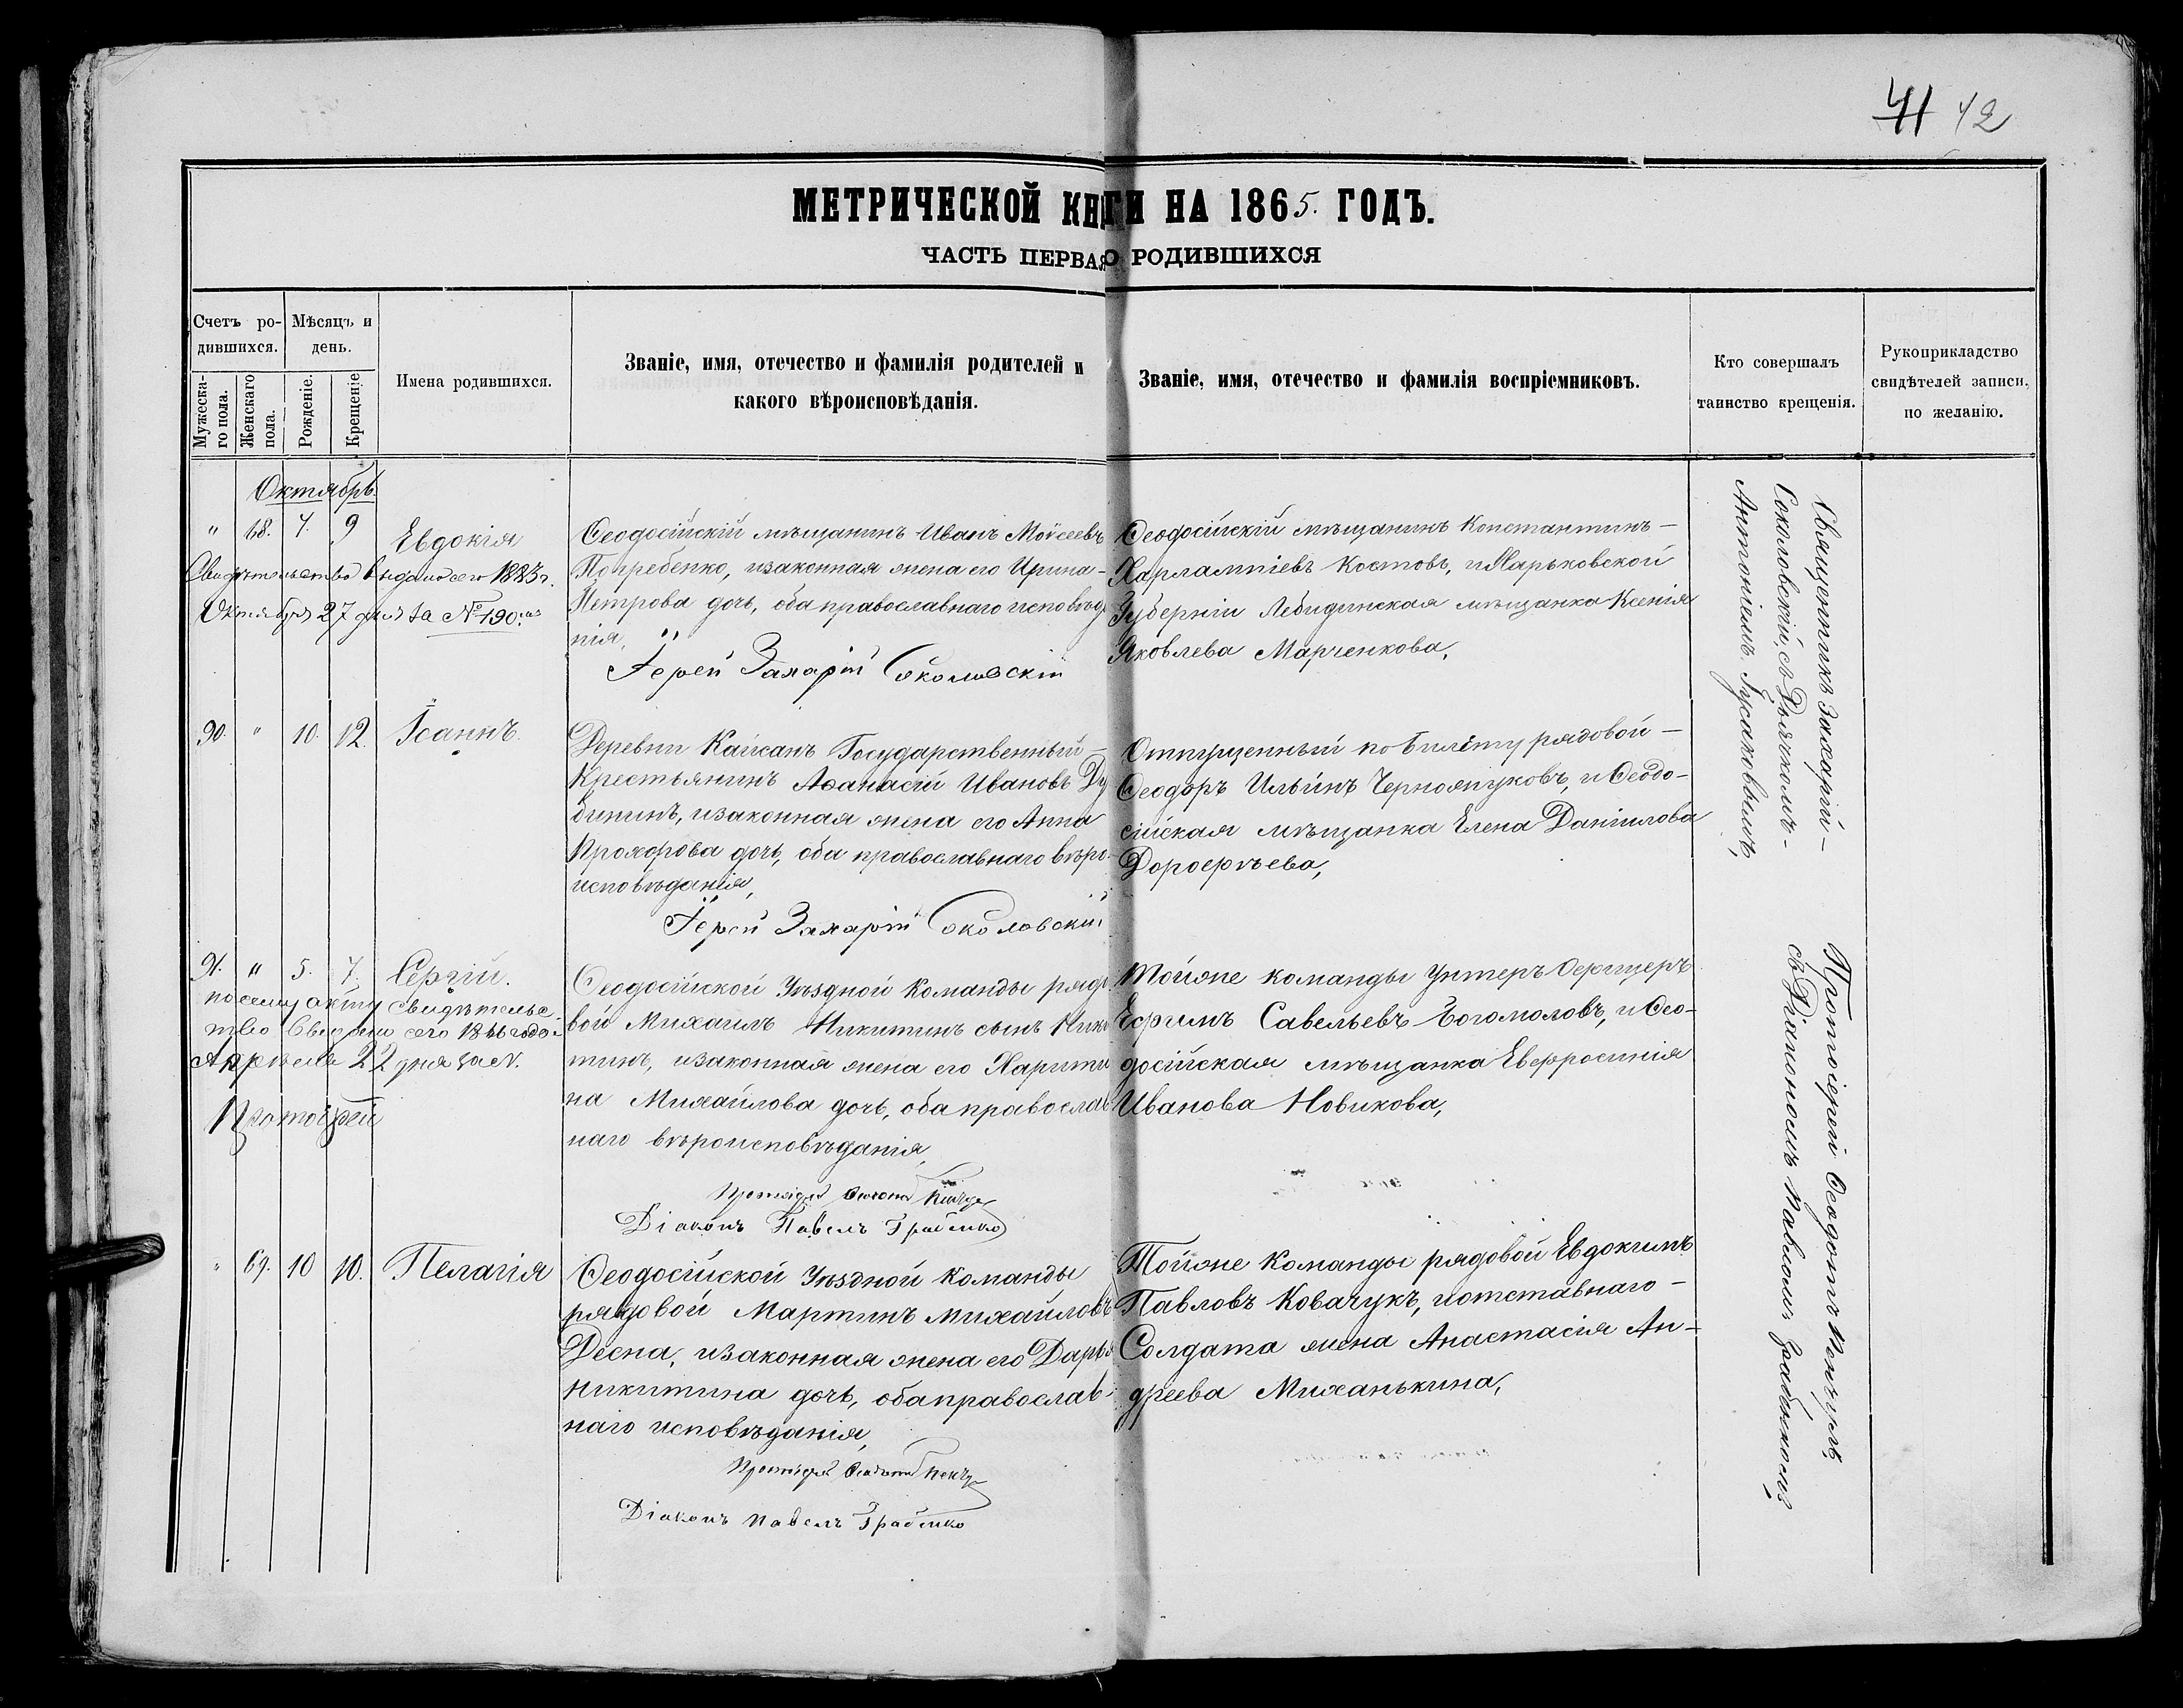 41 42
МЕТРИЧЕСКОЙ КНИГИ НА 1865. ГОДЪ.
ЧАСТЬ ПЕРВАЯ О РОДИВШИХСЯ
Счетъ ро-
дившихся.
Мужеска-
го пола.
Женскаго
пола.
Мѣсяцъ и
день.
Рожденіе.
Крещеніе
Имена родившихся.
Званіе, имя, отечество и фамилія родителей и
какого вѣроисповѣданія.
Званіе, имя, отечество и фамилія воспріемниковъ.
Кто совершалъ
таинство крещенія.
Рукоприкладство
свидѣтелей записи,
по желанію.
Октябрь
" 68. 7. 9 Евдокія
Свидѣтельство выдано сего 1883 г.
Октября 27 дня за № 190.
Ѳеодосійскій мѣщанинъ Иванъ Моѵсеевъ
Погребенко, и законная жена его Ирина -
Петрова дочь, оба православнаго исповѣда
нія,
Іерей Захарій Соколовскій
Ѳеодосійскій мѣщанинъ Константинъ -
Харлампіевъ Костовъ, и Харьковской
Губерніи Лебидинская мѣщанка Ксенія
Яковлева Марченкова,
Священникъ Захарій -
Соколовскій, съ Дьячкомъ -
Антоніемъ Гусаковымъ,
90. " 10. 12. Іоаннъ.
Деревни Кайсанъ Государственный -
Крестьянинъ Аѳанасій Ивановъ Ду
бининъ, и законная жена его Анна
Прохорова дочь, оба православнаго вѣро-
исповѣданія,
Іерей Захарій Соколовскій
Отпущенный по билету рядовой -
Ѳеодоръ Ильинъ Чернояпуковъ, и Ѳеодо-
сійская мѣщанка Елена Даніилова
Дороѳѣева,
91. " 5. 7. Сергій.
по сему акту свидѣтельс
тво выдано сего 1866 года
Апрѣля 22 дня за №.
Протоіерей
Ѳеодосійской Уѣздной Команды рядо
вой Михаилъ Никитинъ сынъ Ники
тинъ, и законная жена его Харити
на Михайлова дочь, оба православ
наго вѣроисповѣданія,
Діаконъ Павелъ Грабенко
Той же команды Унтеръ Офицеръ
Ефимъ Савельевъ Богомоловъ, и Ѳео-
досійская мѣщанка Евфросинія
Иванова Новикова,
Протоіерей Ѳеодотъ
съ Діакономъ Павломъ Грабенкомъ
" 69. 10 10. Пелагія
Ѳеодосійской Уѣздной Команды
рядовой Мартинъ Михайловъ
Десна, и законная жена его Дарья
Никитина дочь, оба православ-
наго исповѣданія,
Діаконъ Павелъ Грабенко
Той же Команды рядовой Евдокимъ
Павловъ Ковачукъ, и отставнаго -
Солдата жена Анастасія Ан-
дреева Миханькина,